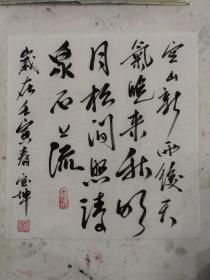 空山新雨後天
氣晚来秋明
月松间照清
泉石上流
岁在壬寅春宝坤